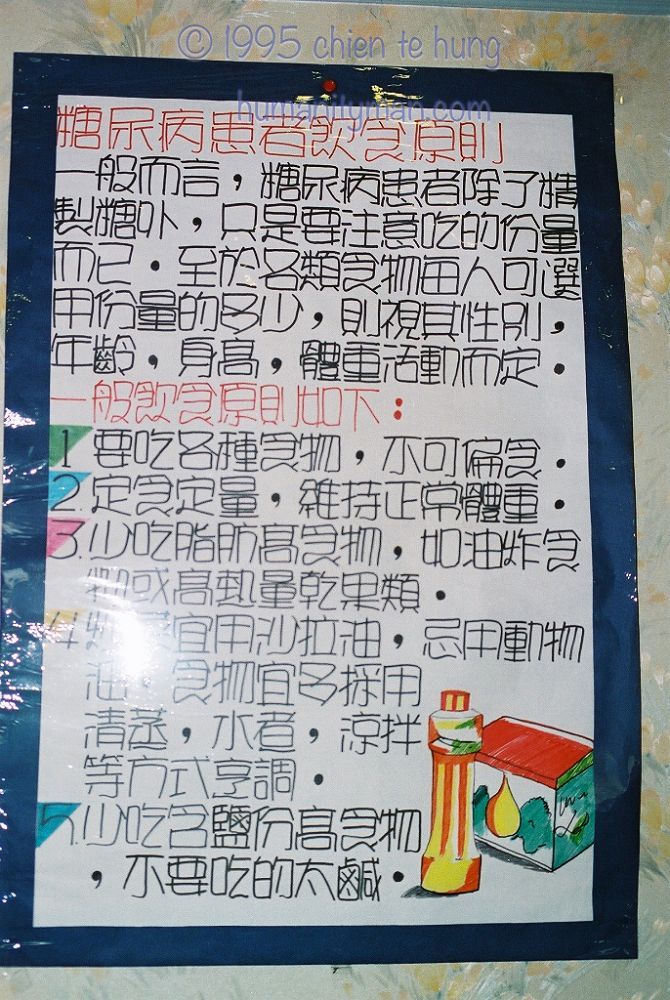 © 1995 chien te hung
humanityman.com
糖尿病患者飲食原則
一般而言，糖尿病患者除了精
製糖外，只是要注意吃的份量
而已．至於各類食物每人可選
用份量的多少，則視其性別，
年齡，身高，體重活動而定．
一般飲食原則如下：
1 要吃各種食物，不可偏食．
2.定食定量，維持正常體重．
3.少吃脂肪高食物，如油炸食
物或高熱量乾果類．
4. 宜用沙拉油，忌用動物
油 食物宜多採用
清蒸，水煮，涼拌
等方式亨調．
5.少吃含鹽份高食物
，不要吃的太鹹．